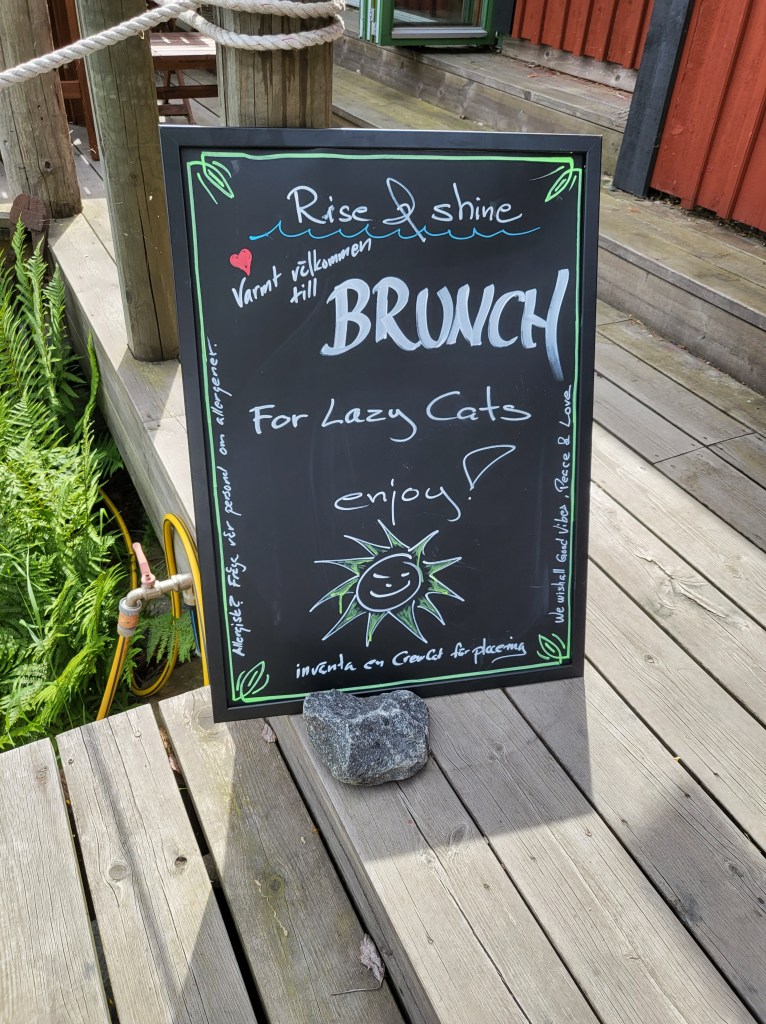 Rise & shine
Varmt välkommen
till
BRUNCH
For Lazy Cats
enjoy!
Allergisk? Fråga vår personal om allergener.
We wish all Good Vibes, Peace & Love
invänta en Crew Cat för placering